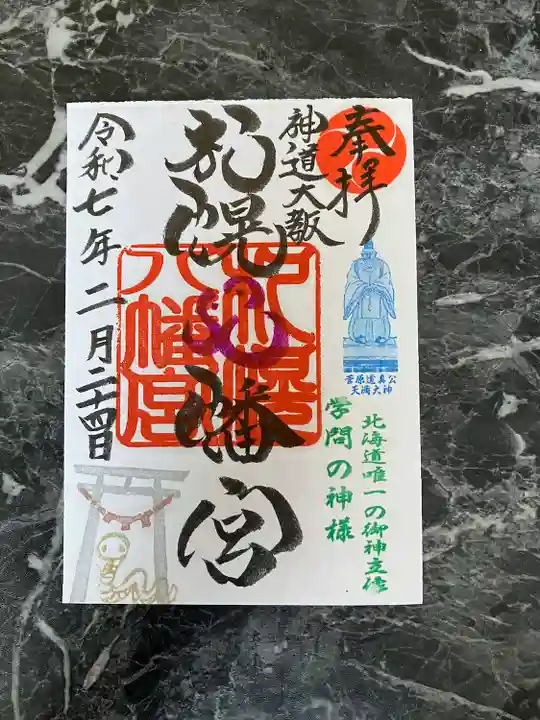 奉拝
神道大教
札幌八幡宮
札幌
八幡宮
菅原道真公
天満大神
北海道唯一の御神立像
学問の神様
令和七年二月二十四日